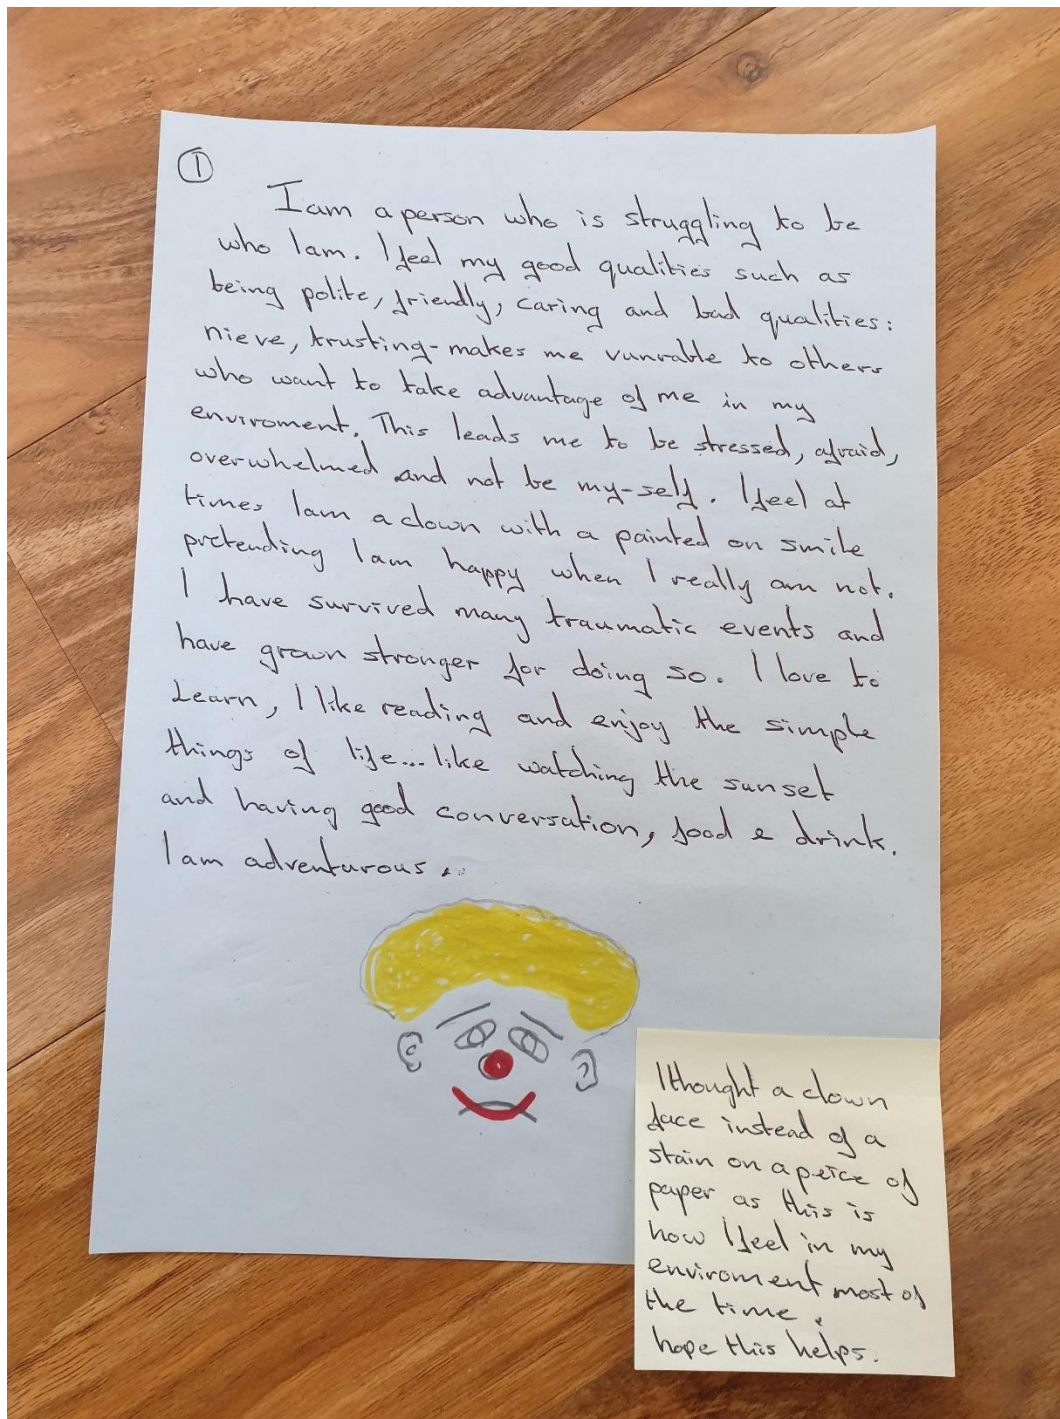 ①
I am a person who is struggling to be
who I am. I feel my good qualities such as
being polite, friendly, caring and bad qualities:
nieve, trusting - makes me vunrable to others
who want to take advantage of me in my
enviroment. This leads me to be stressed, afraid,
overwhelmed and not be my-self. I feel at
times I am a clown with a painted on smile
pretending I am happy when I really am not.
I have survived many traumatic events and
have grown stronger for doing so. I love to
Learn, I like reading and enjoy the simple
things of life... like watching the sunset
and having good conversation, food & drink.
I am adventurous.
I thought a clown
face instead of a
stain on a peice of
paper as this is
how I feel in my
enviroment most of
the time.
hope this helps.